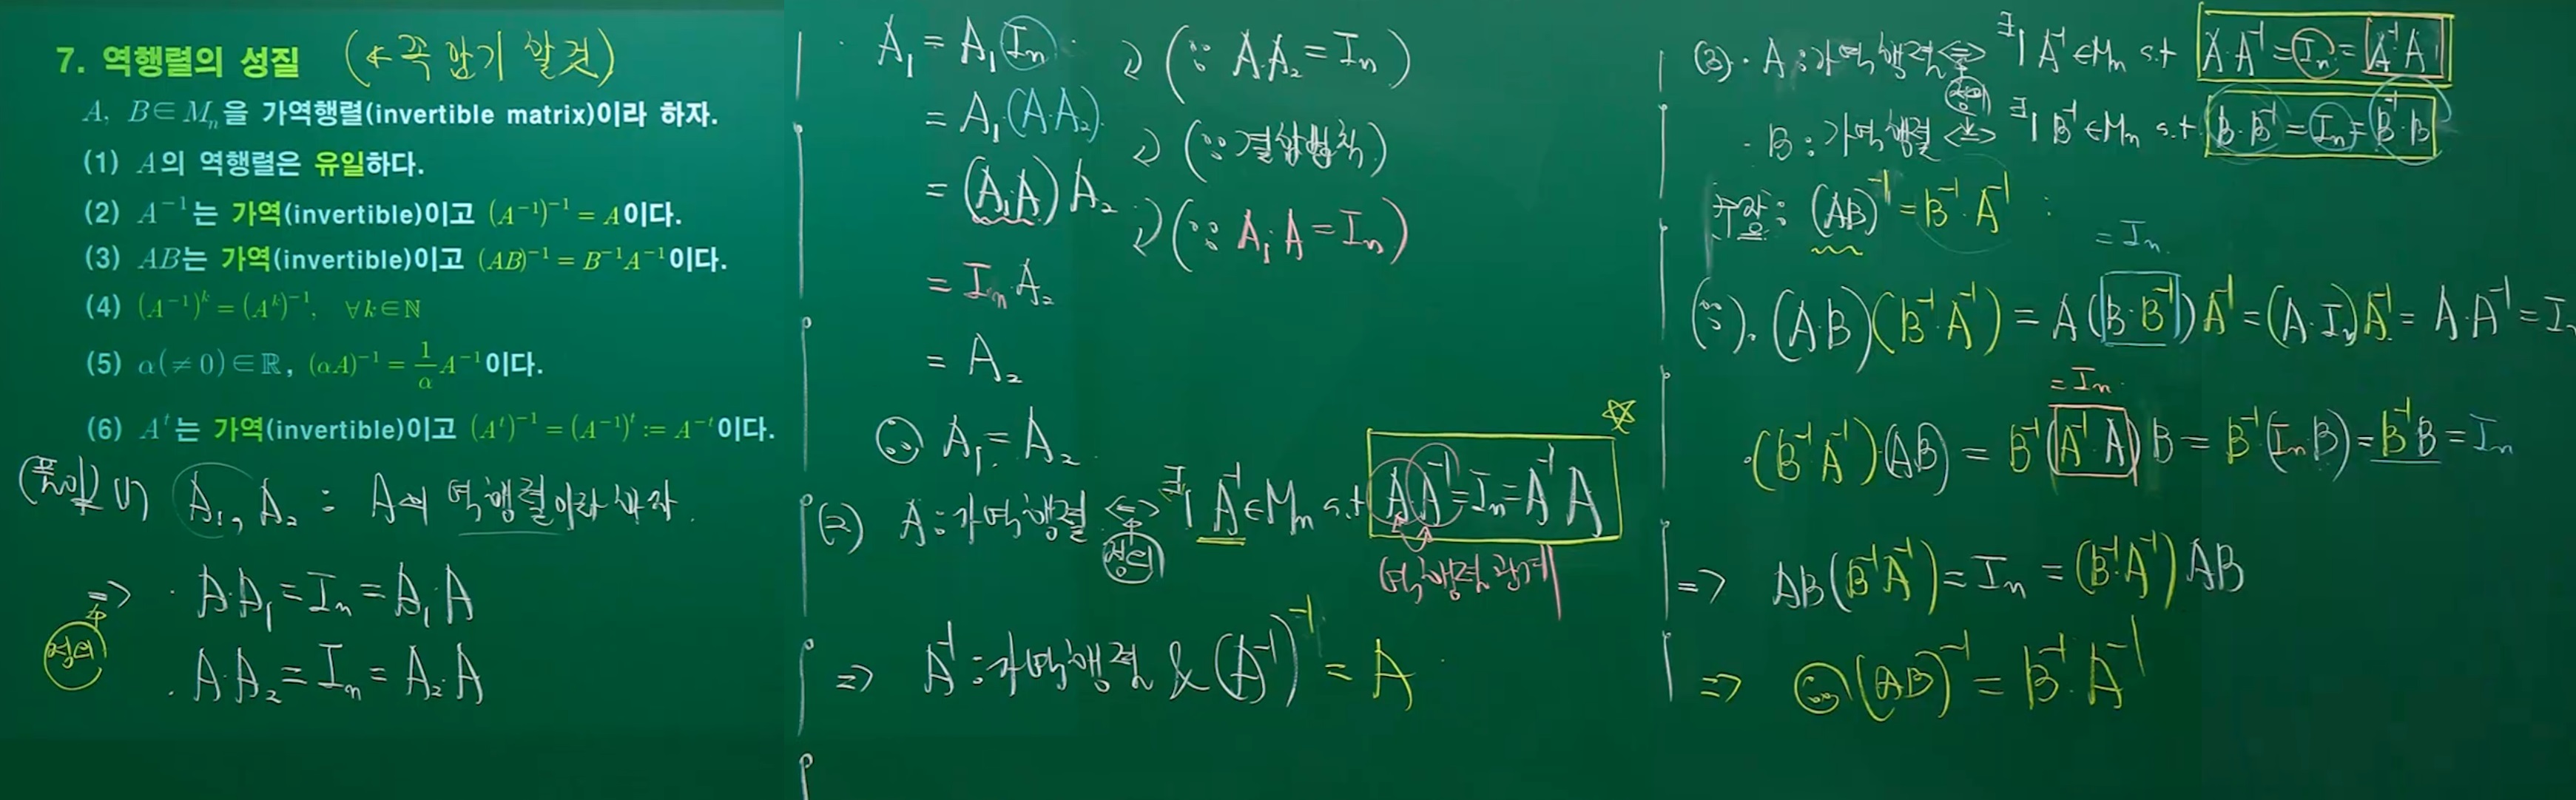 7. 역행렬의 성질 (← 꼭 암기 할 것)
A, B∈M_n을 가역행렬(invertible matrix)이라 하자.
(1) A의 역행렬은 유일하다.
(2) A⁻¹는 가역(invertible)이고 (A⁻¹)⁻¹ = A이다.
(3) AB는 가역(invertible)이고 (AB)⁻¹ = B⁻¹A⁻¹이다.
(4) (A⁻¹)^k = (A^k)⁻¹, ∀k∈ℕ
(5) α(≠0)∈ℝ, (αA)⁻¹ = 1/α A⁻¹이다.
(6) A^t는 가역(invertible)이고 (A^t)⁻¹ = (A⁻¹)^t := A^{-t}이다.
(풀이) (1) A₁, A₂ : A의 역행렬이라 하자.
⇒ · A·A₁ = I_n = A₁·A
정의
· A·A₂ = I_n = A₂·A
· A₁ = A₁ I_n (∵ A·A₂ = I_n)
= A₁·(A·A₂) (∵ 결합법칙)
= (A₁A) A₂ (∵ A₁·A = I_n)
= I_n·A₂
= A₂
∴ A₁ = A₂
(2) A : 가역행렬 ⇔ ∃| A⁻¹∈M_n s.t A·A⁻¹ = I_n = A⁻¹A ☆
정의
역행렬 관계
⇒ A⁻¹ : 가역행렬 & (A⁻¹)⁻¹ = A
(3) · A : 가역행렬 ⇔ ∃| A⁻¹∈M_n s.t A·A⁻¹ = I_n = A⁻¹·A
정의
· B : 가역행렬 ⇔ ∃| B⁻¹∈M_n s.t B·B⁻¹ = I_n = B⁻¹·B
주장 : (AB)⁻¹ = B⁻¹·A⁻¹
= I_n
(∵) · (AB)(B⁻¹·A⁻¹) = A(B·B⁻¹)A⁻¹ = (A·I_n)A⁻¹ = A·A⁻¹ = I_n
= I_n
· (B⁻¹A⁻¹)(AB) = B⁻¹(A⁻¹A)B = B⁻¹(I_n·B) = B⁻¹B = I_n
⇒ AB(B⁻¹A⁻¹) = I_n = (B⁻¹A⁻¹)AB
⇒ ∴ (AB)⁻¹ = B⁻¹·A⁻¹